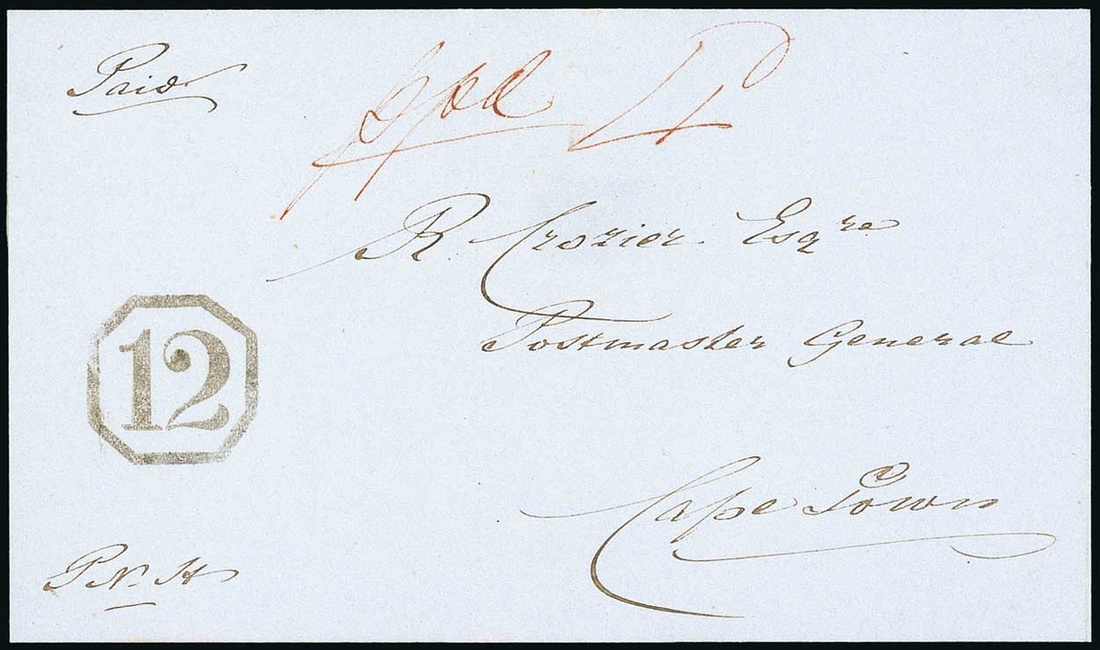 Paid
ppd
R. Crozier Esqre
Postmaster General
12
Cape Town
P.N.H